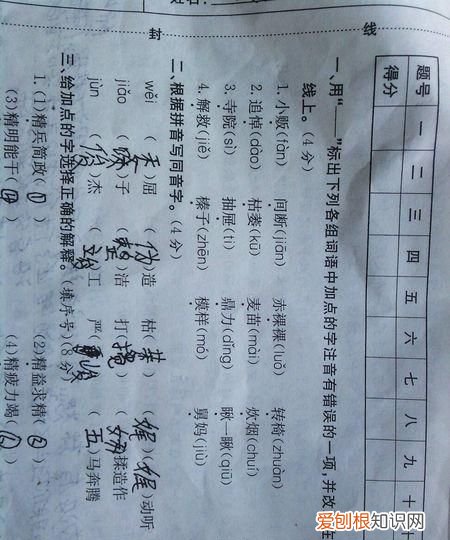 线
封
题号 一 二 三 四 五 六 七 八 九 十
得分
一、用“——”标出下列各组词语中加点的字注音有错误的一项,并改
线上。(4分)
1. 小贩(fàn) 间断(jiān) 赤裸裸(luǒ) 转椅(zhuàn)
2. 追悼(dào) 枯萎(kū) 麦苗(mài) 炊烟(chuí)
3. 寺院(sì) 抽屉(tì) 鼎力(dǐng) 瞅一瞅(qiū)
4. 解救(jiě) 榛子(zhēn) 模样(mó) 舅妈(jiù)
二、根据拼音写同音字。(4分)
wěi ( )屈 (伪)造 枯( ) (娓)(娓)动听
jiǎo ( )子 ( )洁 打( ) ( )揉造作
jùn (俊)杰 ( )工 严(峻) ( )马奔腾
三、给加点的字选择正确的解释。(填序号)(8分)
1. (1)精兵简政( ) (2)精益求精( )
(3)精明能干( ) (4)精疲力竭( )
爱刨根知识网